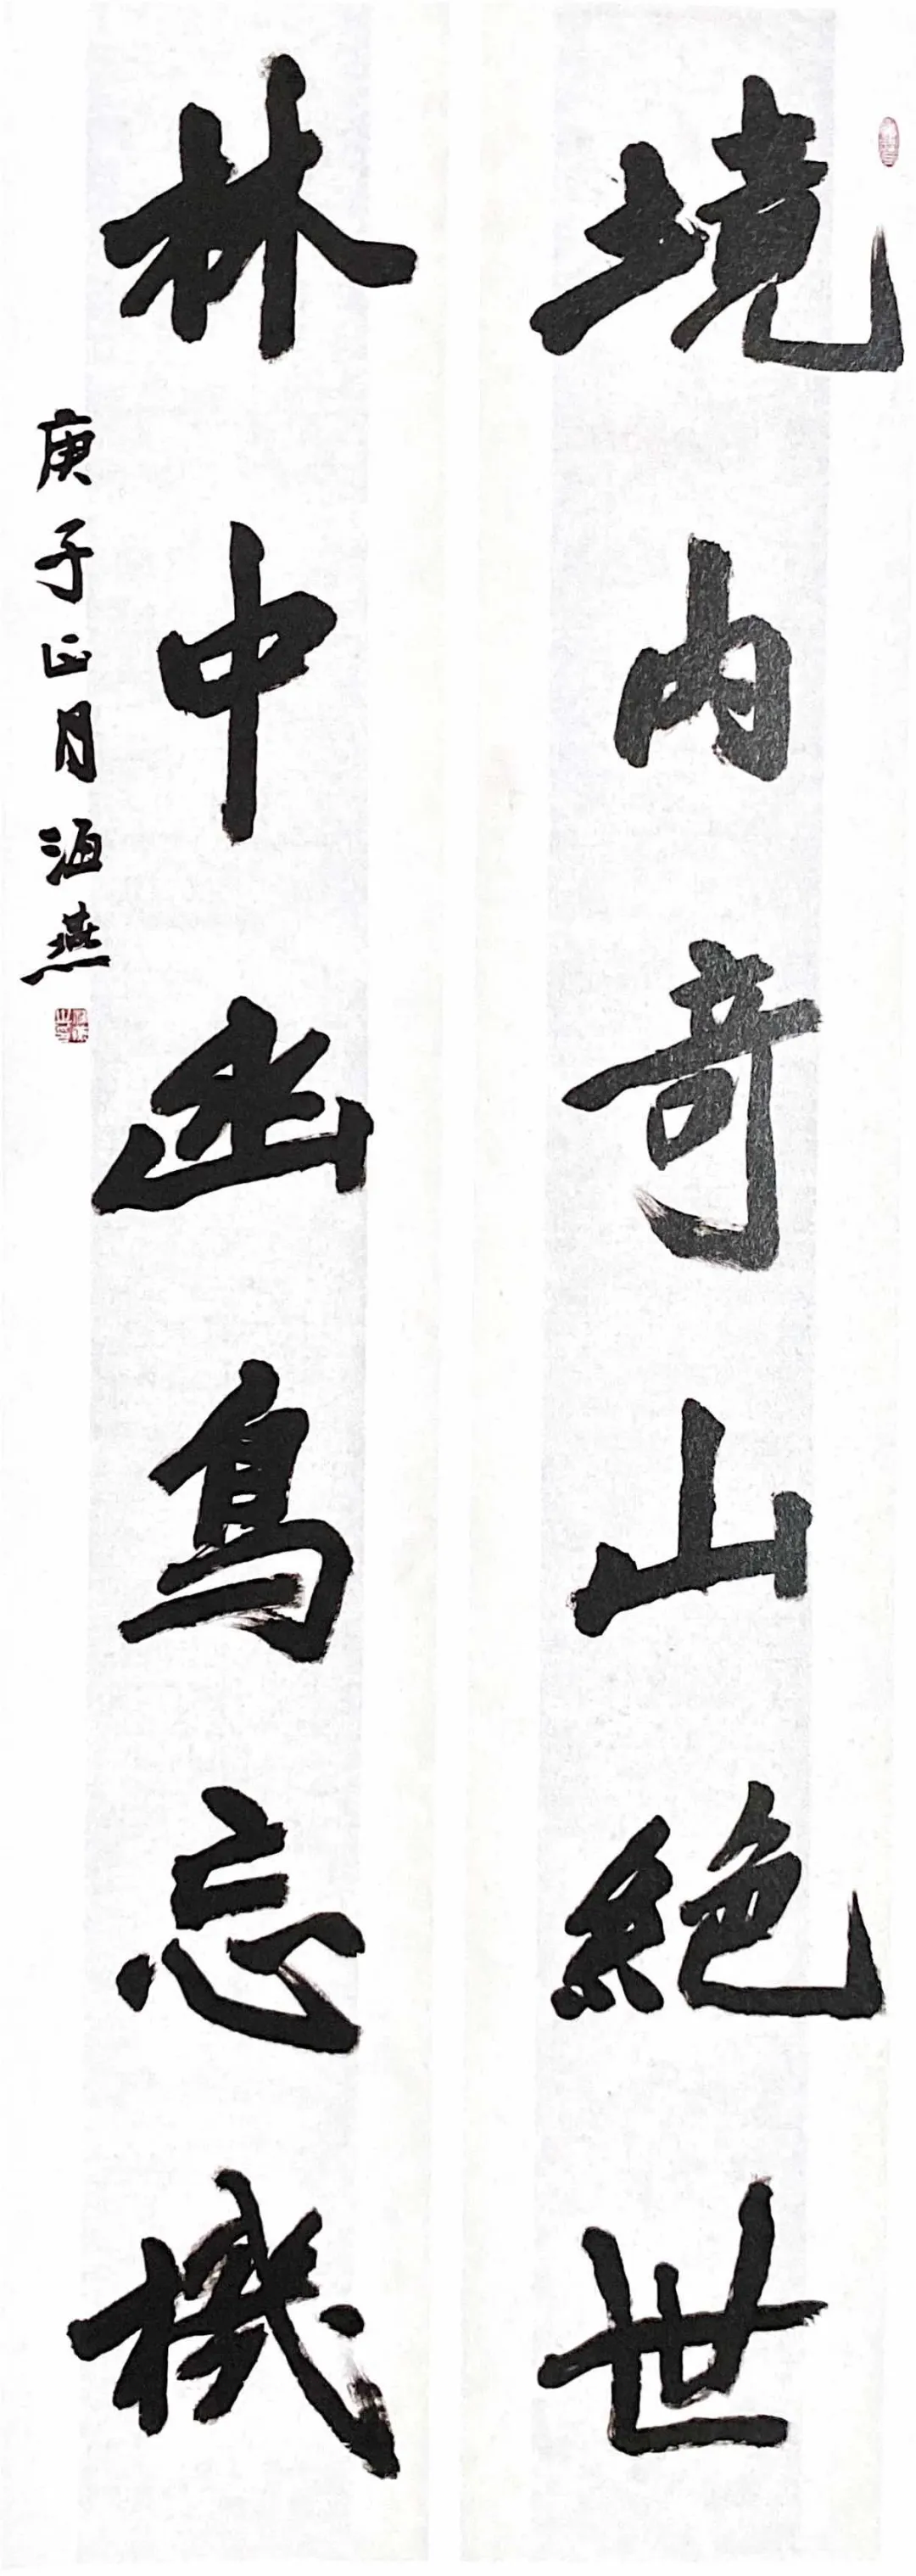 境内奇山絶世
林中幽鳥忘機
庚子正月海燕